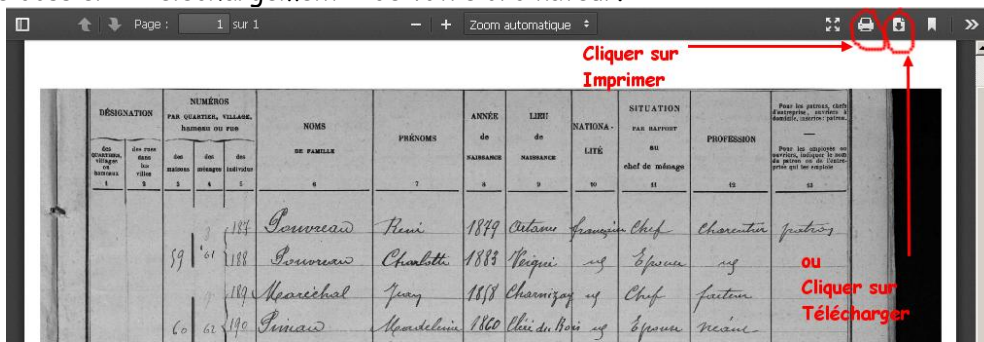 Page : 1 sur 1 Zoom automatique
Cliquer sur
Imprimer
DÉSIGNATION
NUMÉROS
PAR QUARTIER, VILLAGE,
hameau ou rue
NOMS
DE FAMILLE
PRÉNOMS
ANNÉE
de
NAISSANCE
LIEU
de
NAISSANCE
NATIONA-
LITÉ
SITUATION
PAR RAPPORT
au
chef de ménage
PROFESSION
Pour les patrons, chefs
d'entreprise, ouvriers à
domicile, inscrire : patron.
Pour les employés ou
ouvriers, indiquer le nom
du patron ou de l'entre-
prise qui les emploie
des
QUARTIERS,
villages
ou
hameaux
des rues
dans
les
villes
des
maisons
des
ménages
des
individus
1 2 3 4 5 6 7 8 9 10 11 12 13
187 Pouvreau René 1879 Artanne française Chef Charentier patron
59 61 188 Pouvreau Charlotte 1883 Veigné Epouse
189 Maréchal Jean 1858 Charnizay Chef facteur
60 62 190 1860 Epouse néant
ou
Cliquer sur
Télécharger